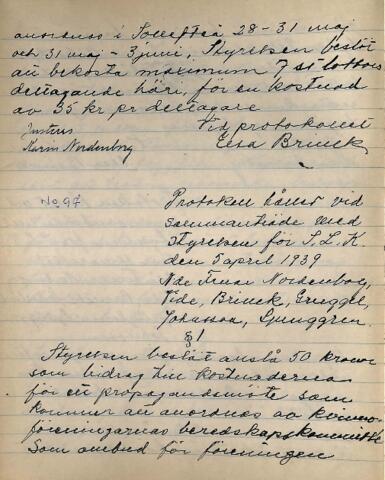 anordnas i Sollefteå 28-31 maj
och 31 maj - 3 juni, Styrelsen beslöt
att bekosta maximum 7 st lottors
deltagande häri, för en kostnad
av 35 kr pr deltagare
Justeras Vid protokollet
Karin Nordenborg Elsa Brinck
No 97 Protokoll hållet vid
sammanträde med
styrelsen för S.L.K.
den 5 april 1939
Nde Fruar Nordenborg,
Vide, Brinck, Gruggel,
Johansson, Ljunggren.
§1
Styrelsen beslöt anslå 50 kronor
som bidrag till kostnaderna
för ett propagandamöte som
kommer att anordnas av kvinno-
föreningarnas beredskapskommitté
Som ombud för föreningen